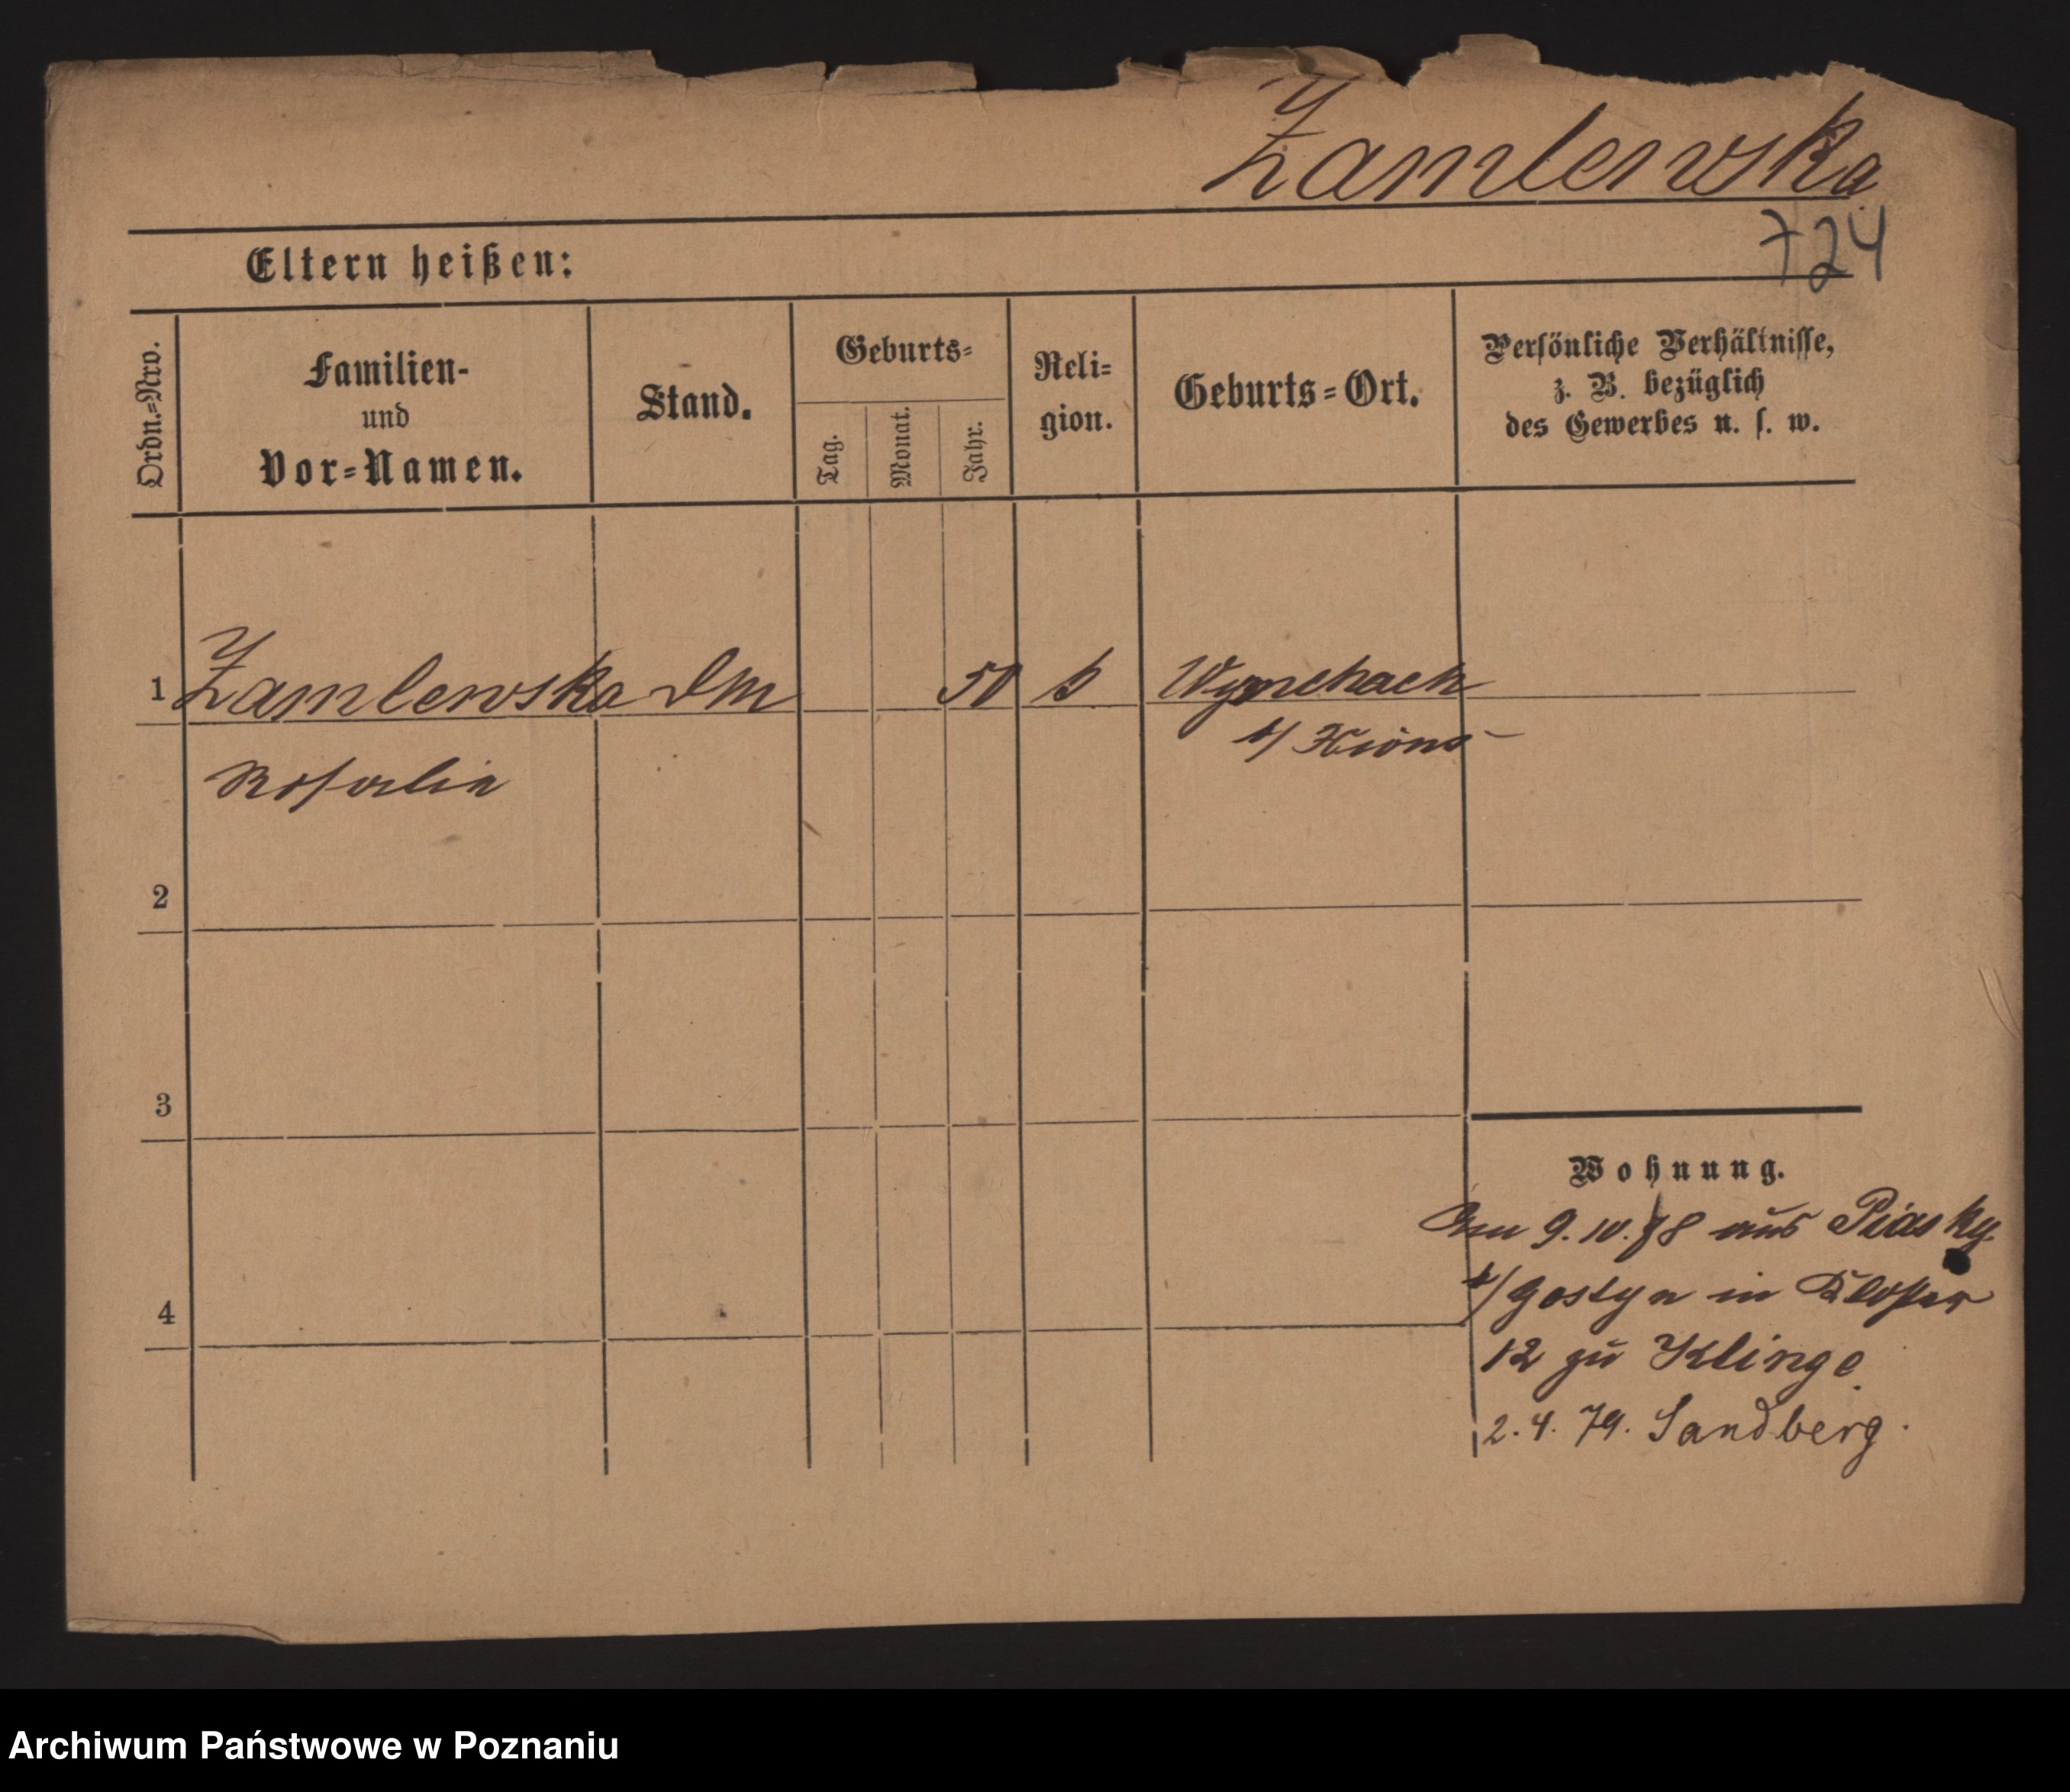 Zamlewska
724
Eltern heißen:
Ordn.=Nro.
Familien-
und
Vor=Namen.
Stand.
Geburts=
Tag.
Monat.
Jahr.
Reli=
gion.
Geburts=Ort.
Persönliche Verhältnisse,
z. B. bezüglich
des Gewerbes u. s. w.
1 Zamlewska DM 50
b/ Xions
Rosalia
2
3
Wohnung.
9.10.78 aus Piasky
b/ Gostyn in Kloster
4
12 zu Klinge
2.4.79. Sandberg.
Archiwum Państwowe w Poznaniu